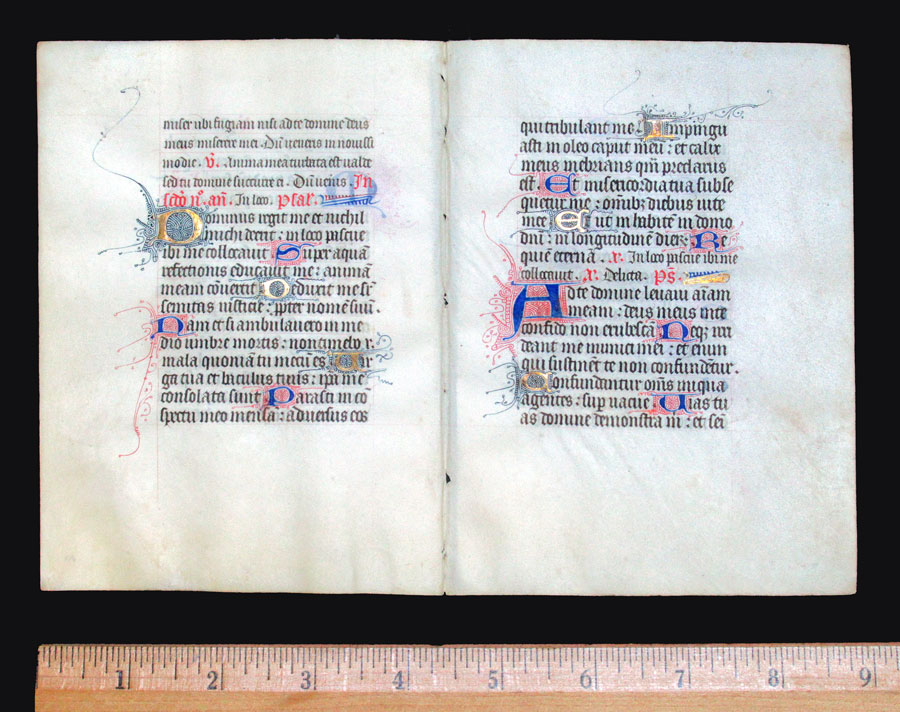 miser ubi fugiam nisi ad te domine deus
meus miserere mei. Dū veneris in novissi
mo die. v̄. Anima mea turbata est valde
sed tu domine succurre ei. Dū veneris. In
scḋo no. an̄. In loco. psal.
Dominus regit me et nichil
michi deerit : in loco pascue
ibi me collocavit Super aquā
refectionis educavit me : animā
meam convertit Deduxit me sr̄
semitas iusticie : ppter nomē suū.
Nam et si ambulavero in me
dio umbre mortis : non timebo
mala quoniā tu mecū es Vir
ga tua et baculus tuus : ipa me
consolata sunt Parasti in co
spectu meo mensā : adversus eos
qui tribulant me Impingu
asti in oleo caput meū : et calix
meus inebrians qm̄ preclarus
est Et misericordia tua subse
quetur me : omīb; diebus vite
mee Et ut inhabitē in domo
dnī : in longitudinē dierz Re
quiē eternā. a. In loco pascue ibi me
collocavit. a. Delicta. ps̄
Ad te domine levavi aīam
meam : deus meus in te
confido non erubescā Neq; irri
deant me inimici mei : et enim
qui sustinēt te non confundētur.
Confundantur om̄s iniqua
agentes : sup vacue Vias tu
as domine demonstra m̄ : et sei
1 2 3 4 5 6 7 8 9